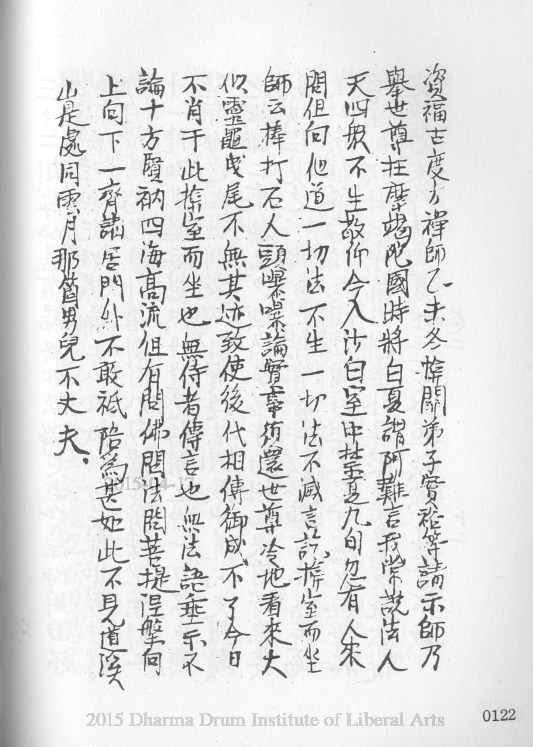 資福古度方禪師乙未冬掩關弟子實裕等請示師乃
舉世尊在摩竭陀國時將白夏謂阿難言我常說法人
天四衆不生敬仰今入沙臼室中禁夏九旬忽有人來
問但向他道一切法不生一切法不滅言訖掩室而坐
師云棒打石人頭曝曝論實事須還世尊冷地看來大
似靈龜曳尾不無其迹致使後代相傳御成不了今日
不肖于此掩室而坐也無侍者傳言也無法語垂示不
論十方賢衲四海高流但有問佛問法問菩提涅槃向
上向下一齊請居門外不敢祇陪爲甚如此不見道溪
山是處同雲月那箇男兒不丈夫。
2015-04-13
2015 Dharma Drum Institute of Liberal Arts
0122